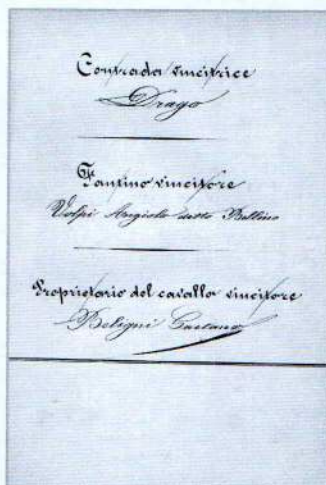 Contrada vincitrice
Drago
Fantino vincitore
Volpi Angiolo detto Bellino
Proprietario del cavallo vincitore
Beligni Gaetano